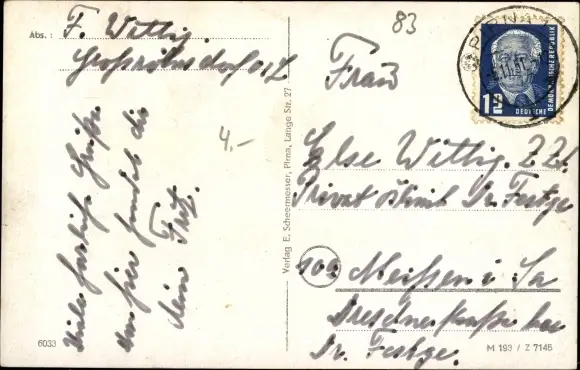 Abs.: F. Wittig.
Großröhrsdorf o/Z
Viele herzliche Grüße
von hier sendet dir
dein Fritz.
6033
4,-
Verlag E. Scheermesser, Pirna, Lange Str. 27
83
PIRNA
12
DEUTSCHE
DEMOKRATISCHE REPUBLIK
Frau
Else Wittig. Z Z.
Privat Klinik Dr. Festge
10a Meißen i. Sa
Dresdnerstraße bei
Dr. Festge.
M 193 / Z 7145